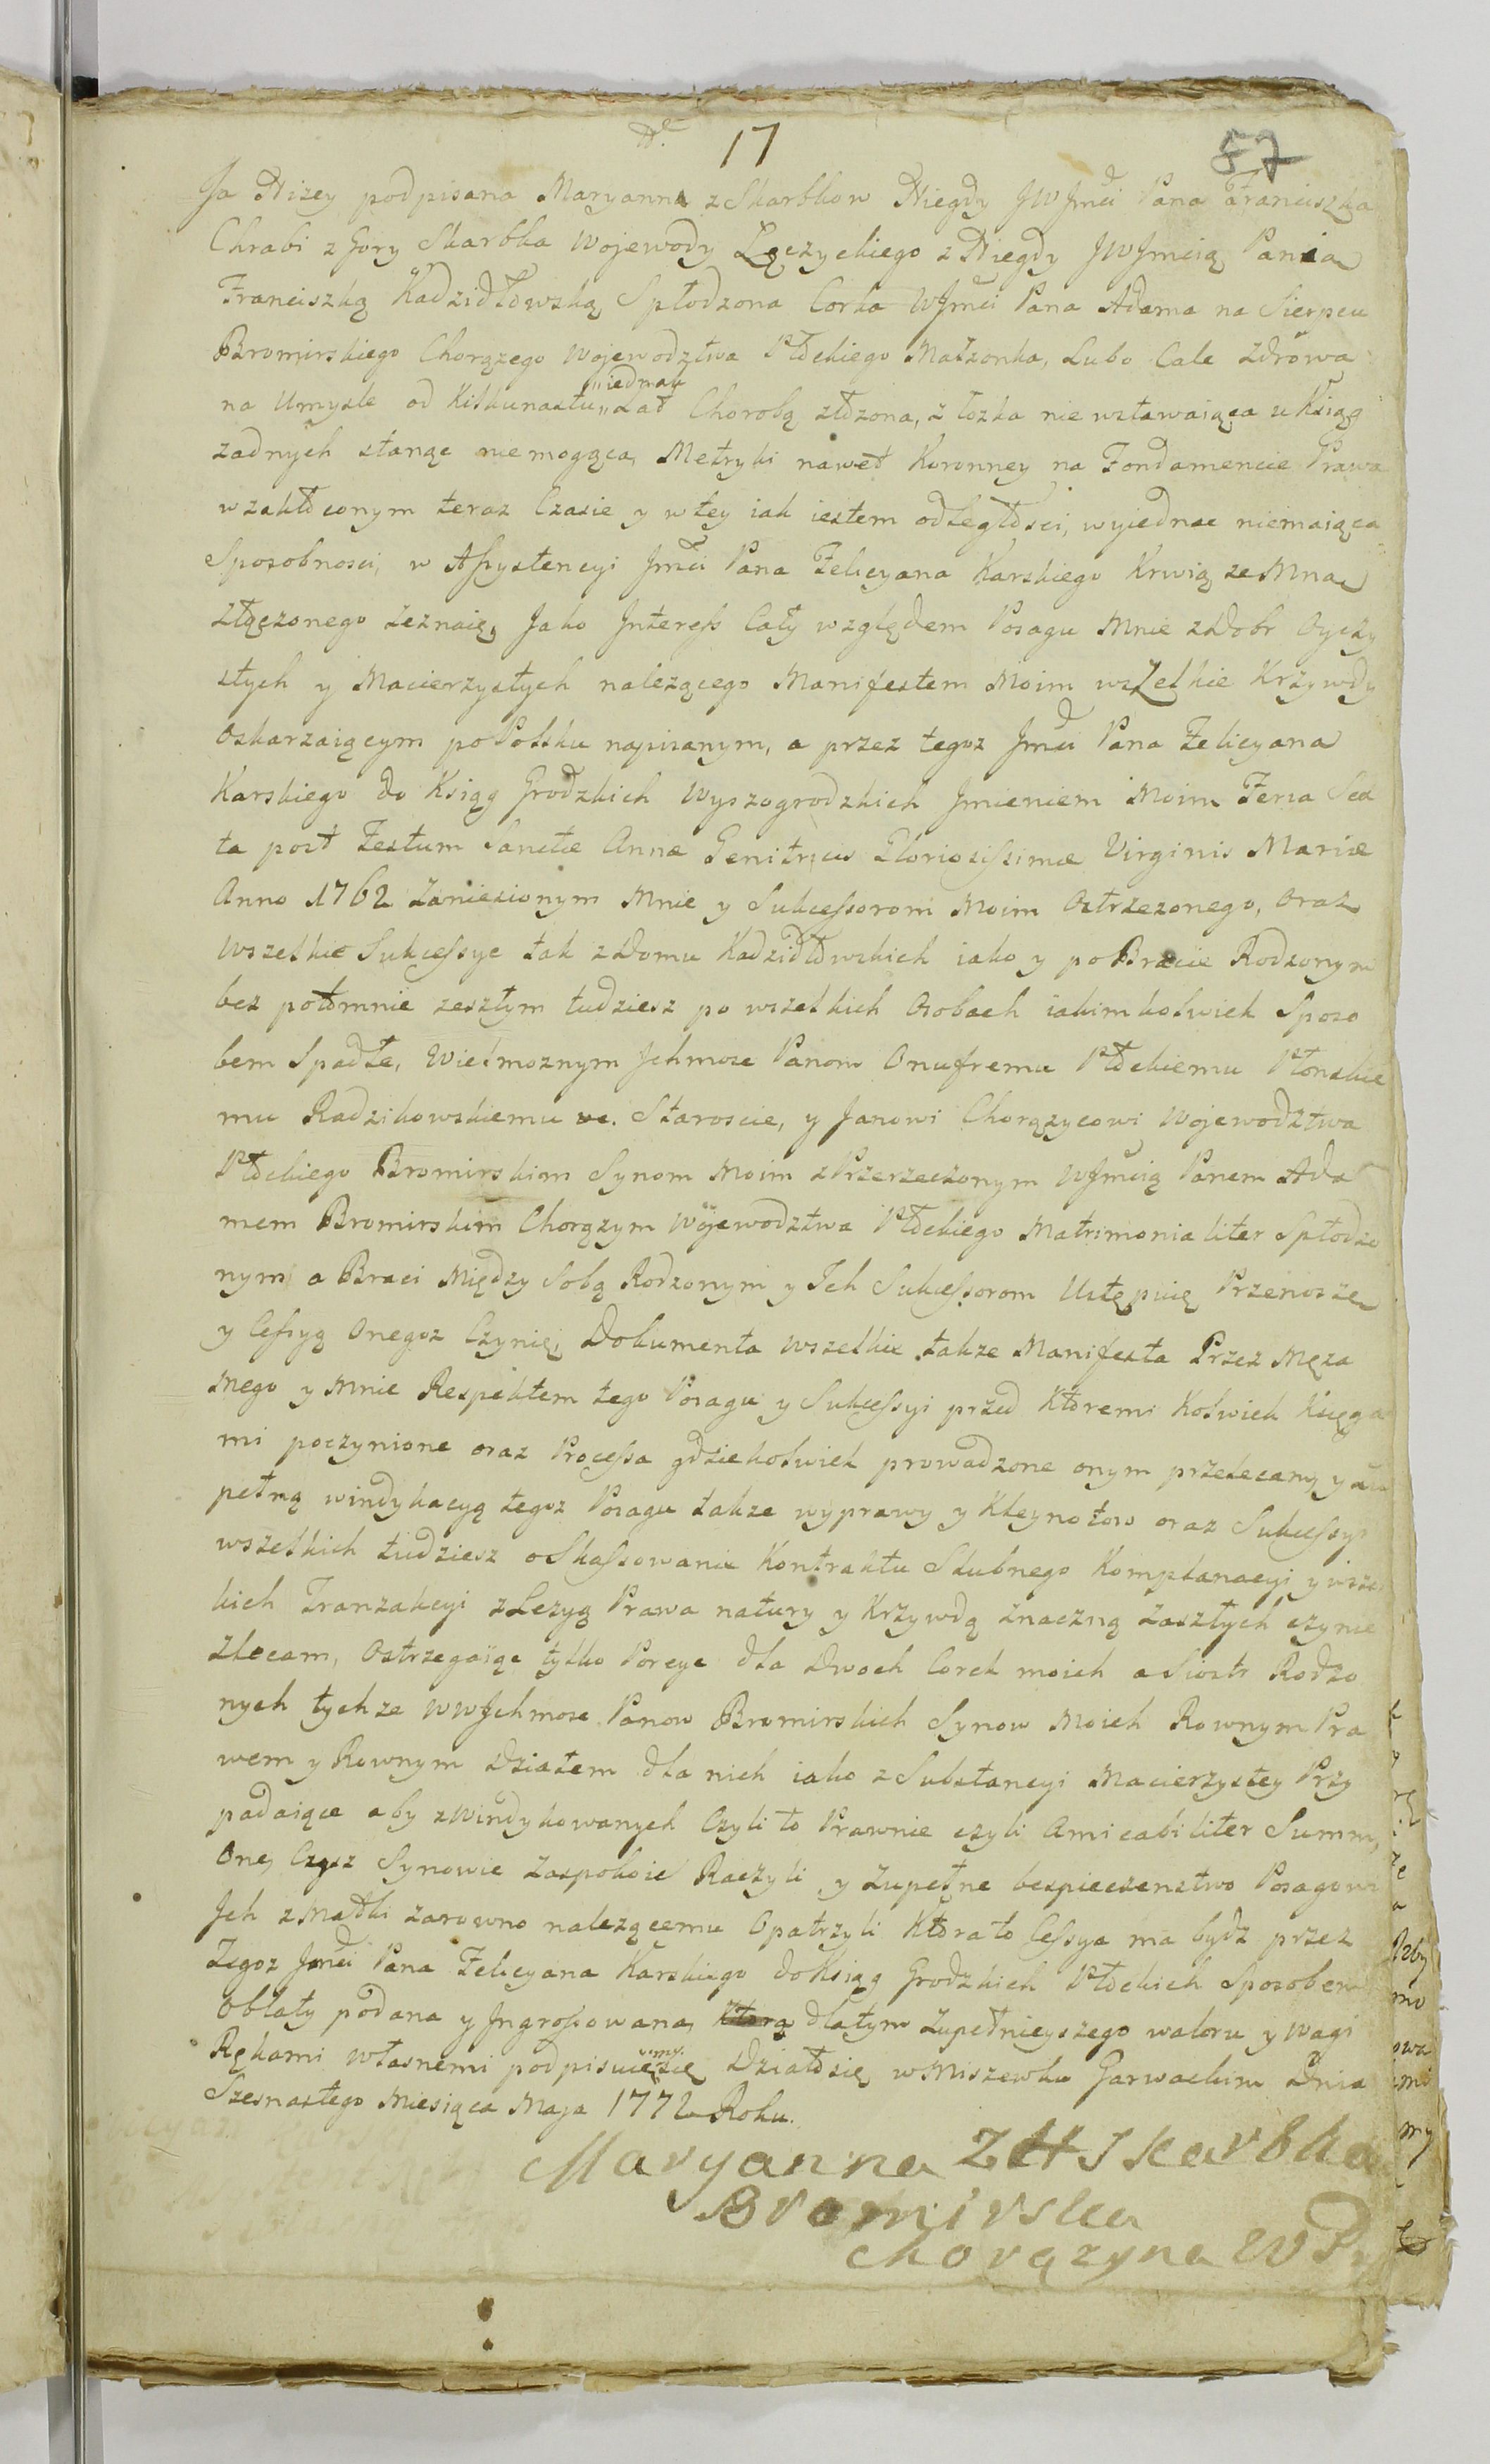 N. 17
57
Ja Nizey podpisana Maryanna z Skarbkow Niegdy JWJmci Pana Franciszka
Chrabi z Gory Skarbka Wojewody Lęczyckiego z Niegdy JWJmcią Panią
Franciszką Kadzidłowską Spłodzona Corka WJmci Pana Adama na Sierpcu
Bromirskiego Chorązego Wojewodztwa Płckiego Małzonka, Lubo Cale Zdrowa
na Umysle od Kilkunastu iednak Lat Chorobą złozona, z łozka nie wstawaiąca u Ksiąg
zadnych stanąc niemogąca, Metryki nawet Koronney na Fondamencie Prawa
w zakłoconym teraz Czasie y w tey iak iestem odległosci, wyiednac niemaiąca
Sposobnosci, w Assystencyi Jmci Pana Felicyana Karskiego Krwią ze Mną
złączonego zeznaię, Jako Jnteress Cały względem Posagu Mnie z Dobr Oyczy
stych y Macierzystych nalezącego Manifestem Moim wszelkie Krzywdy
Oskarzaiącym po Polsku napisanym, a przez tegoz Jmci Pana Felicyana
Karskiego do Ksiąg Grodzkich Wyszogrodzkich Jmieniem Moim Feria Sex
ta post Festum Sanctæ Annæ Genitricis Gloriosissimæ Virginis Mariæ
Anno 1762 Zaniesionym Mnie y Sukcessorom Moim Ostrzezonego, Oraz
Wszelkie Sukcessye tak z Domu Kadzidłowskich iako y po Bracie Rodzonym
bez potomnie zeszłym tudziesz po wszelkich Osobach iakimkolwiek Sposo
bem Spadłe, Wielmoznym Jchmosc Panom Onufremu Płckiemu Płonskie
mu Radzikowskiemu &c. Staroscie, y Janowi Chorązycowi Wojewodztwa
Płckiego Bromirskim Synom Moim z Przerzeczonym WJmcią Panem Ada
mem Bromirskim Chorązym Wojewodztwa Płckiego Matrimonialiter Spłodzo
nym a Braci Między Sobą Rodzonym y Jch Sukcessorom Ustępuię Przenoszę
y Cessyą Onegoz Czynię, Dokumenta wszelkie takze Manifesta Przez Męza
Mego y Mnie Respektem tego Posagu y Sukcessyi przed Ktoremi Kolwiek Księga
mi poczynione oraz Processa gdziekolwiek prowadzone onym przelecam, y zu
pełną windykacyą tegoz Posagu takze wyprawy y Kleynotow oraz Sukcessyi
wszelkich tudziesz o Skassowanie Kontraktu Slubnego Komplanacyi y wszel
kich Tranzakcyi z Lezyą Prawa natury y Krzywdą znaczną zaszłych czynie
Zlecam, Ostrzegaiąc tylko Porcye dla Dwoch Corek moich a Siostr Rodzo
nych tychze WWJchmosc Panow Bromirskich Synow Moich Rownym Pra
wem y Rownym Działem dla nich iako z Substancyi Macierzystey Przy
padaiące aby z Windykowanych Czyli to Prawnie czyli Amicabiliter Summ,
One Czysz Synowie Zaspokoić Raczyli, y Zupełne bespieczenstwo Posagowi
Jch z Matki zarowno nalezącemu Opatrzyli Ktora to Cessya ma bydz przez
Tegoz Jmci Pana Felicyana Karskiego do Ksiąg Grodzkich Płckich Sposobem
Oblaty podana y Jngrossowana, dla tym Zupełnieyszego waloru y wagi
Rękami własnemi podpisuięmy się Działo się w Miszewku Garwackim Dnia
Szesnastego Miesiąca Maja 1772 Roku.
Maryanna Z H Skarbka
Bromirska
Chorązyna W P